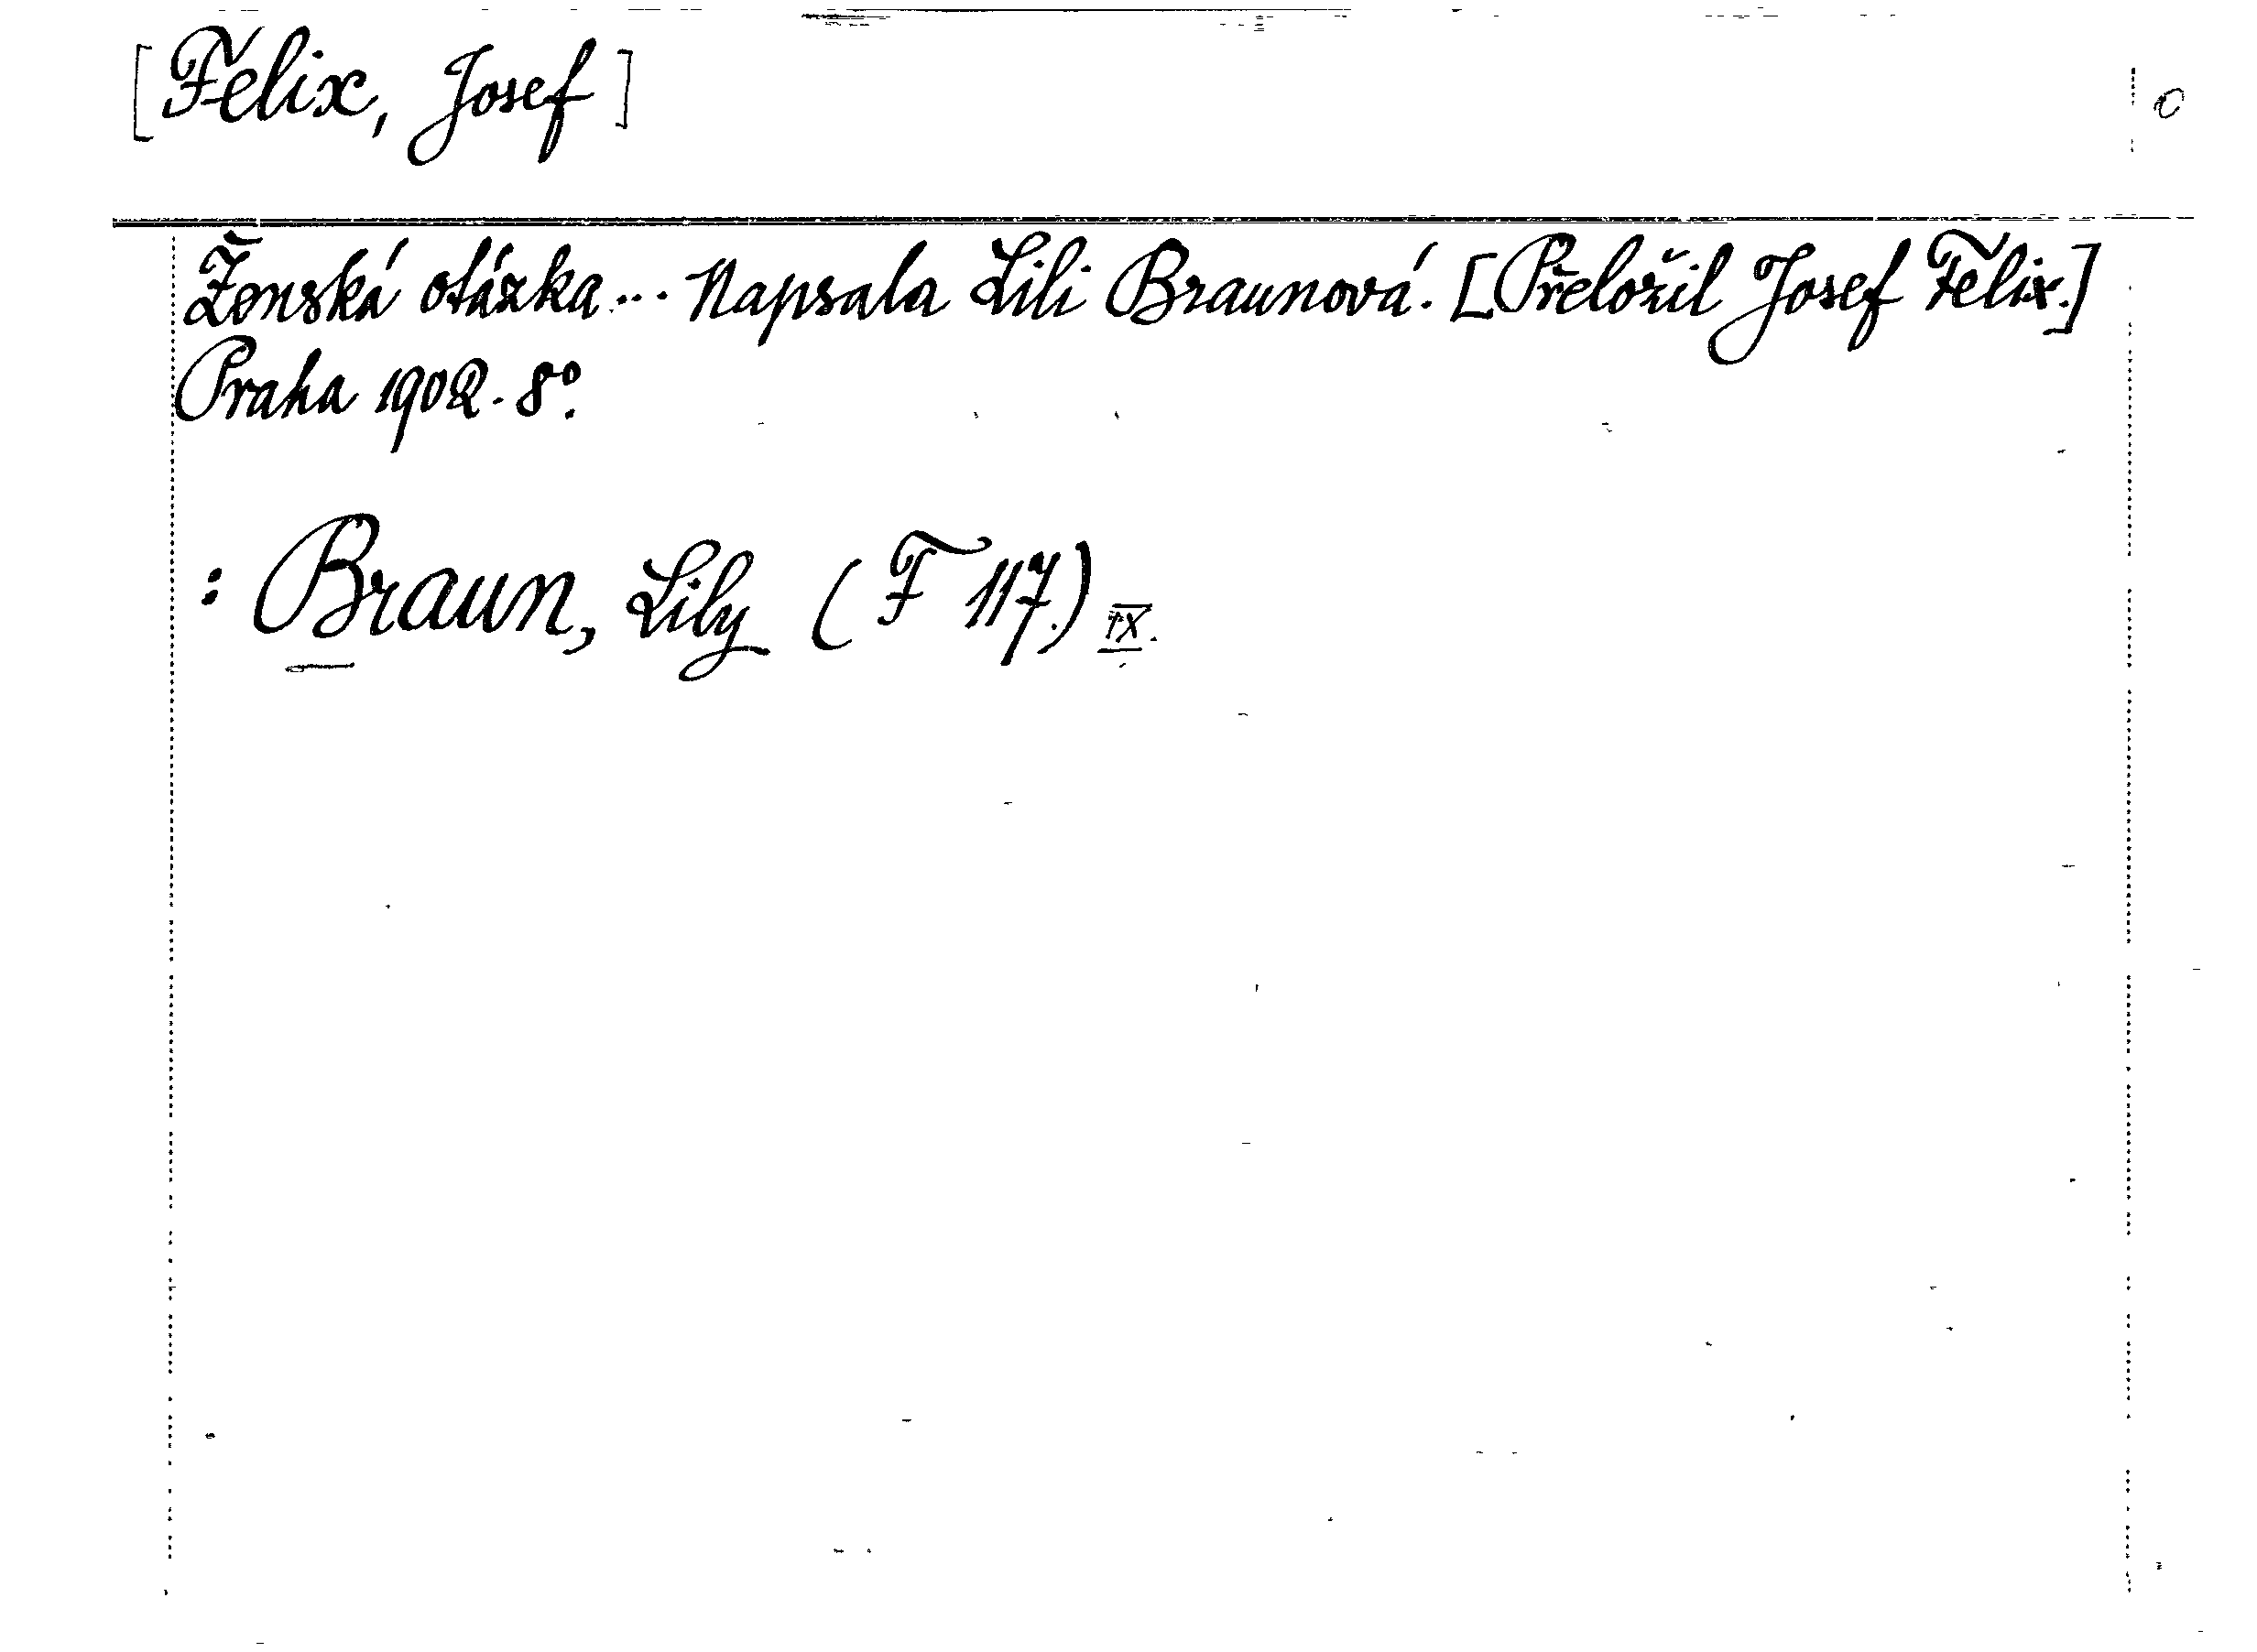 [Felix, Josef]
c
Ženská otázka... Napsala Lili Braunová. [Přeložil Josef Felix.]
Praha 1902. 8°.
: Braun, Lily (F 117.) IX.